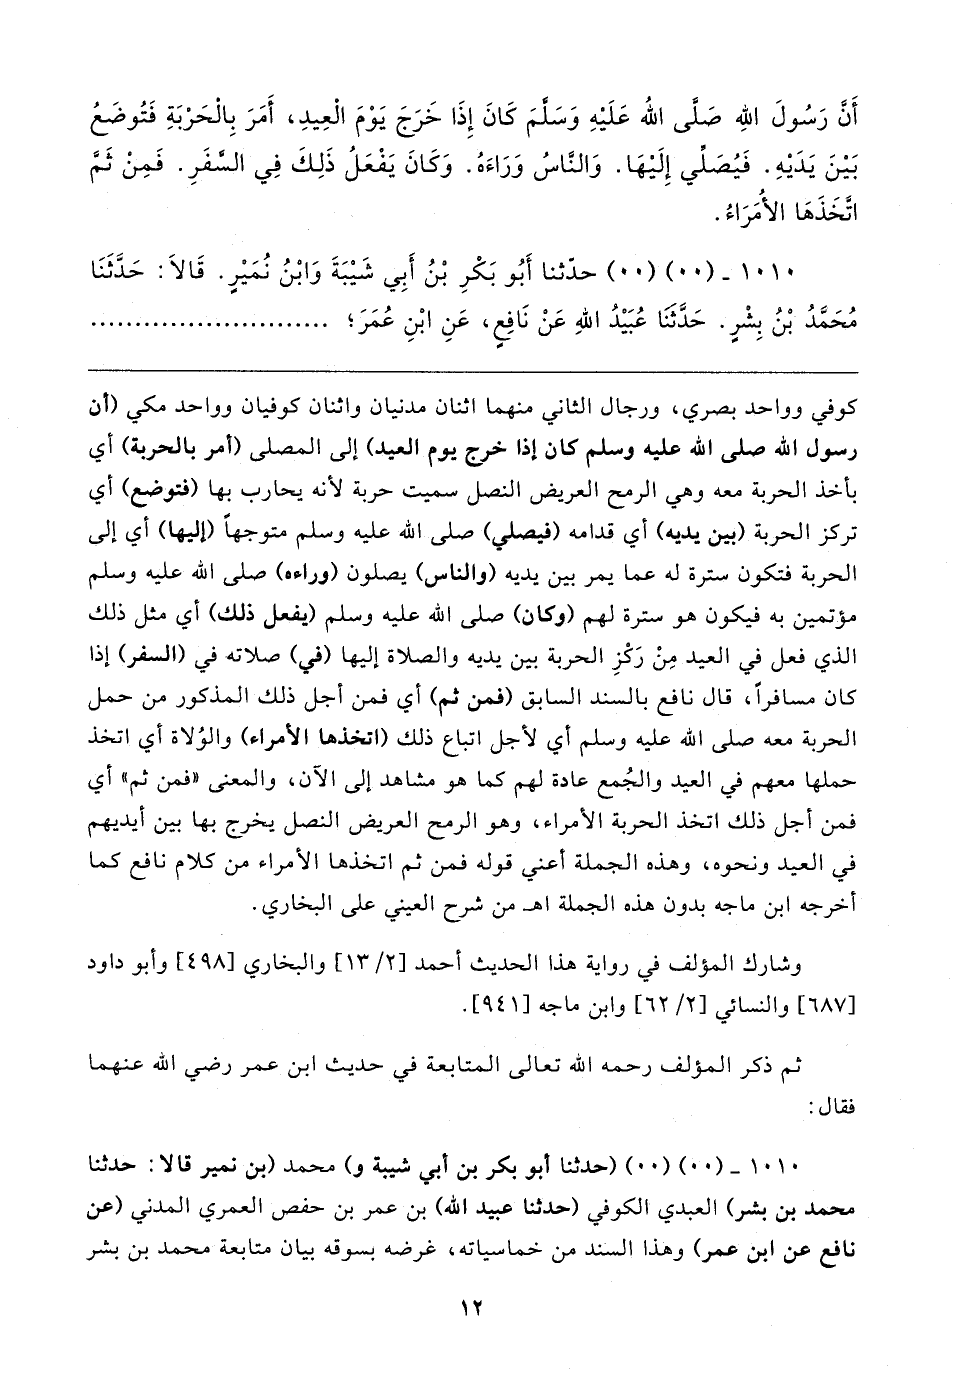 أَنَّ رَسُولَ اللهِ صَلَّى اللهُ عَلَيْهِ وَسَلَّمَ كَانَ إِذَا خَرَجَ يَوْمَ الْعِيدِ، أَمَرَ بِالْحَرْبَةِ فَتُوضَعُ
بَيْنَ يَدَيْهِ. فَيُصَلِّي إِلَيْهَا. وَالنَّاسُ وَرَاءَهُ. وَكَانَ يَفْعَلُ ذَلِكَ فِي السَّفَرِ. فَمِنْ ثَمَّ
اتَّخَذَهَا الأُمَرَاءُ.
١٠١٠ - (٠٠) (٠٠) حدّثنا أَبُو بَكْرِ بْنُ أَبِي شَيْبَةَ وَابْنُ نُمَيْرٍ. قَالاَ: حَدَّثَنَا
مُحَمَّدُ بْنُ بِشْرٍ. حَدَّثَنَا عُبَيْدُ اللهِ عَنْ نَافِعٍ، عَنِ ابْنِ عُمَرَ؛ ...........................
كوفي وواحد بصري، ورجال الثاني منهما اثنان مدنيان واثنان كوفيان وواحد مكي (أن
رسول الله صلى الله عليه وسلم كان إذا خرج يوم العيد) إلى المصلى (أمر بالحربة) أي
يأخذ الحربة معه وهي الرمح العريض النصل سميت حربة لأنه يحارب بها (فتوضع) أي
تركز الحربة (بين يديه) أي قدامه (فيصلي) صلى الله عليه وسلم متوجهاً (إليها) أي إلى
الحربة فتكون سترة له عما يمر بين يديه (والناس) يصلون (وراءه) صلى الله عليه وسلم
مؤتمين به فيكون هو سترة لهم (وكان) صلى الله عليه وسلم (يفعل ذلك) أي مثل ذلك
الذي فعل في العيد مِنْ رَكْزِ الحربة بين يديه والصلاة إليها (في) صلاته في (السفر) إذا
كان مسافراً، قال نافع بالسند السابق (فمن ثم) أي فمن أجل ذلك المذكور من حمل
الحربة معه صلى الله عليه وسلم أي لأجل اتباع ذلك (اتخذها الأمراء) والوُلاة أي اتخذ
حملها معهم في العيد والجُمع عادة لهم كما هو مشاهد إلى الآن، والمعنى «فمن ثم» أي
فمن أجل ذلك اتخذ الحربة الأمراء، وهو الرمح العريض النصل يخرج بها بين أيديهم
في العيد ونحوه، وهذه الجملة أعني قوله فمن ثم اتخذها الأمراء من كلام نافع كما
أخرجه ابن ماجه بدون هذه الجملة اهـ من شرح العيني على البخاري.
وشارك المؤلف في رواية هذا الحديث أحمد [٢/ ١٣] والبخاري [٤٩٨] وأبو داود
[٦٨٧] والنسائي [٢/ ٦٢] وابن ماجه [٩٤١].
ثم ذكر المؤلف رحمه الله تعالى المتابعة في حديث ابن عمر رضي الله عنهما
فقال:
١٠١٠ - (٠٠) (٠٠) (حدثنا أبو بكر بن أبي شيبة و) محمد (بن نمير قالا: حدثنا
محمد بن بشر) العبدي الكوفي (حدثنا عبيد الله) بن عمر بن حفص العمري المدني (عن
نافع عن ابن عمر) وهذا السند من خماسياته، غرضه بسوقه بيان متابعة محمد بن بشر
١٢